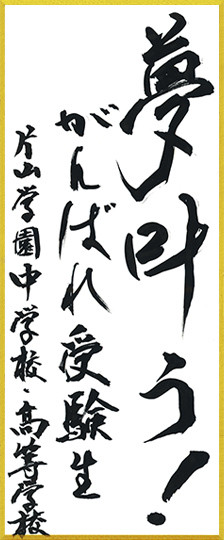 夢叶う!
がんばれ受験生
片山学園中学校・高等学校